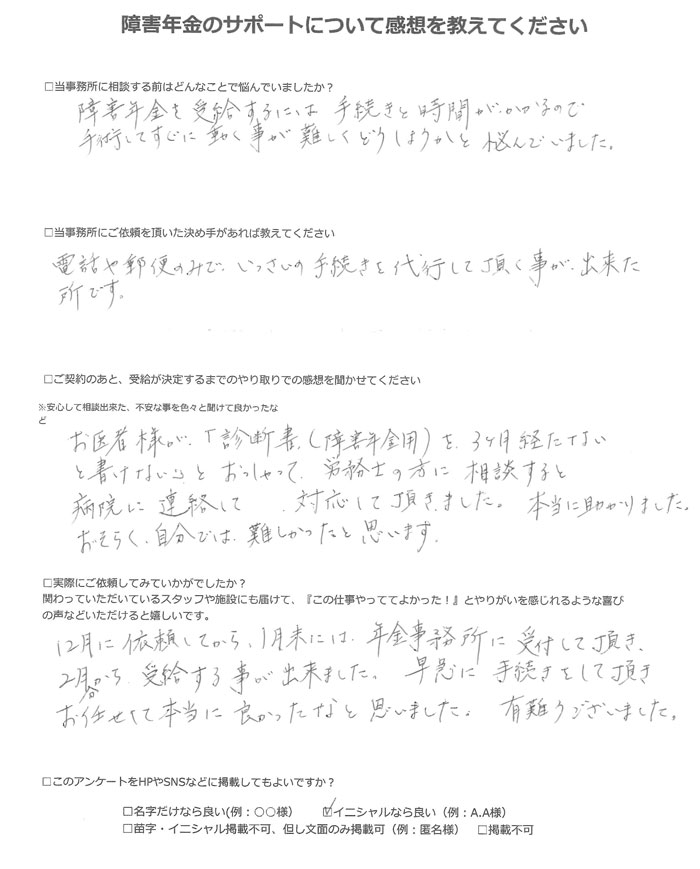 障害年金のサポートについて感想を教えてください
□当事務所に相談する前はどんなことで悩んでいましたか？
障害年金を受給するには手続きと時間がかかるので
手術してすぐに動く事が難しくどうしようかと悩んでいました。
□当事務所にご依頼を頂いた決め手があれば教えてください
電話や郵便のみで、いっさいの手続きを代行して頂く事が、出来た
所です。
□ご契約のあと、受給が決定するまでのやり取りでの感想を聞かせてください
※安心して相談出来た、不安な事を色々と聞けて良かったな
ど
お医者様が、「診断書（障害年金用）を、3ヶ月経たない
と書けない」とおっしゃって、労務士の方に相談すると
病院に連絡して、対応して頂きました。本当に助かりました。
おそらく、自分では、難しかったと思います。
□実際にご依頼してみていかがでしたか？
関わっていただいているスタッフや施設にも届けて、『この仕事やっててよかった！』とやりがいを感じれるような喜び
の声などいただけると嬉しいです。
12月に依頼してから、1月末には、年金事務所に受付して頂き、
2月分から受給する事が出来ました。早急に手続きをして頂き
お任せして本当に良かったなと思いました。有難うございました。
□このアンケートをHPやSNSなどに掲載してもよいですか？
□名字だけなら良い(例：〇〇様）　☑イニシャルなら良い（例：A.A様）
□苗字・イニシャル掲載不可、但し文面のみ掲載可（例：匿名様）　□掲載不可